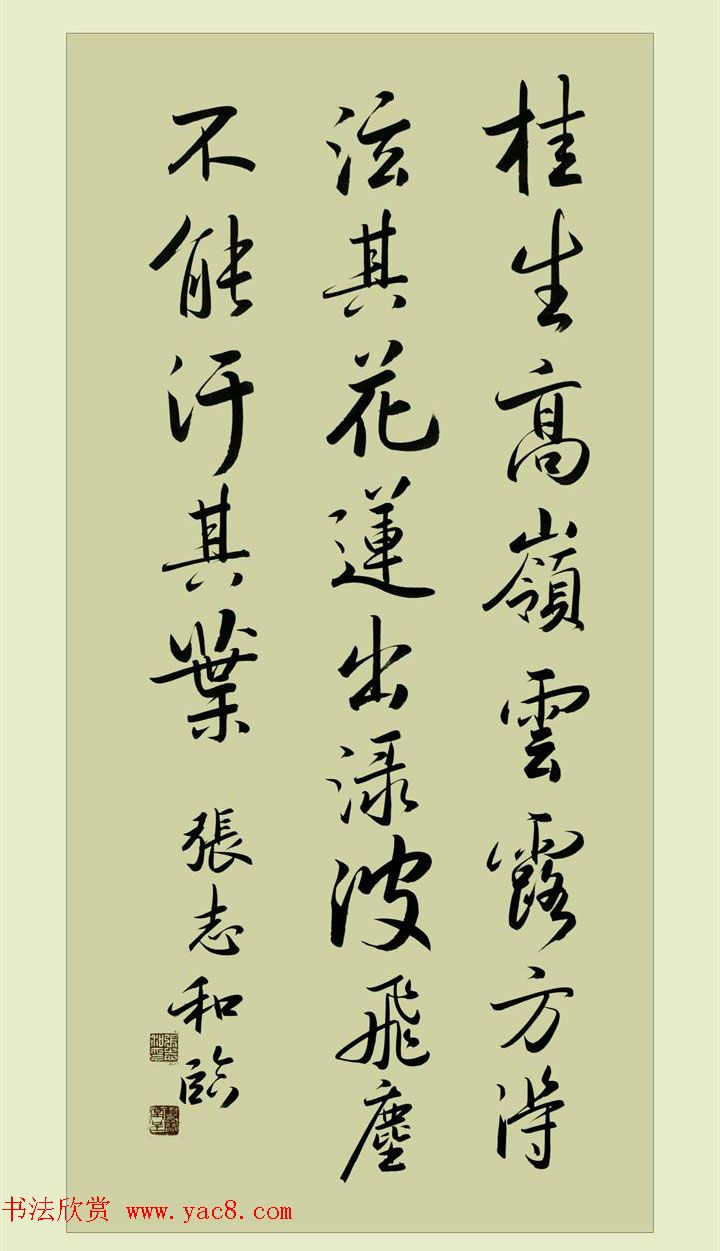 桂生高嶺雲露方得
泫其花蓮出渌波飛塵
不能汙其葉
張志和臨
书法欣赏 www.yac8.com